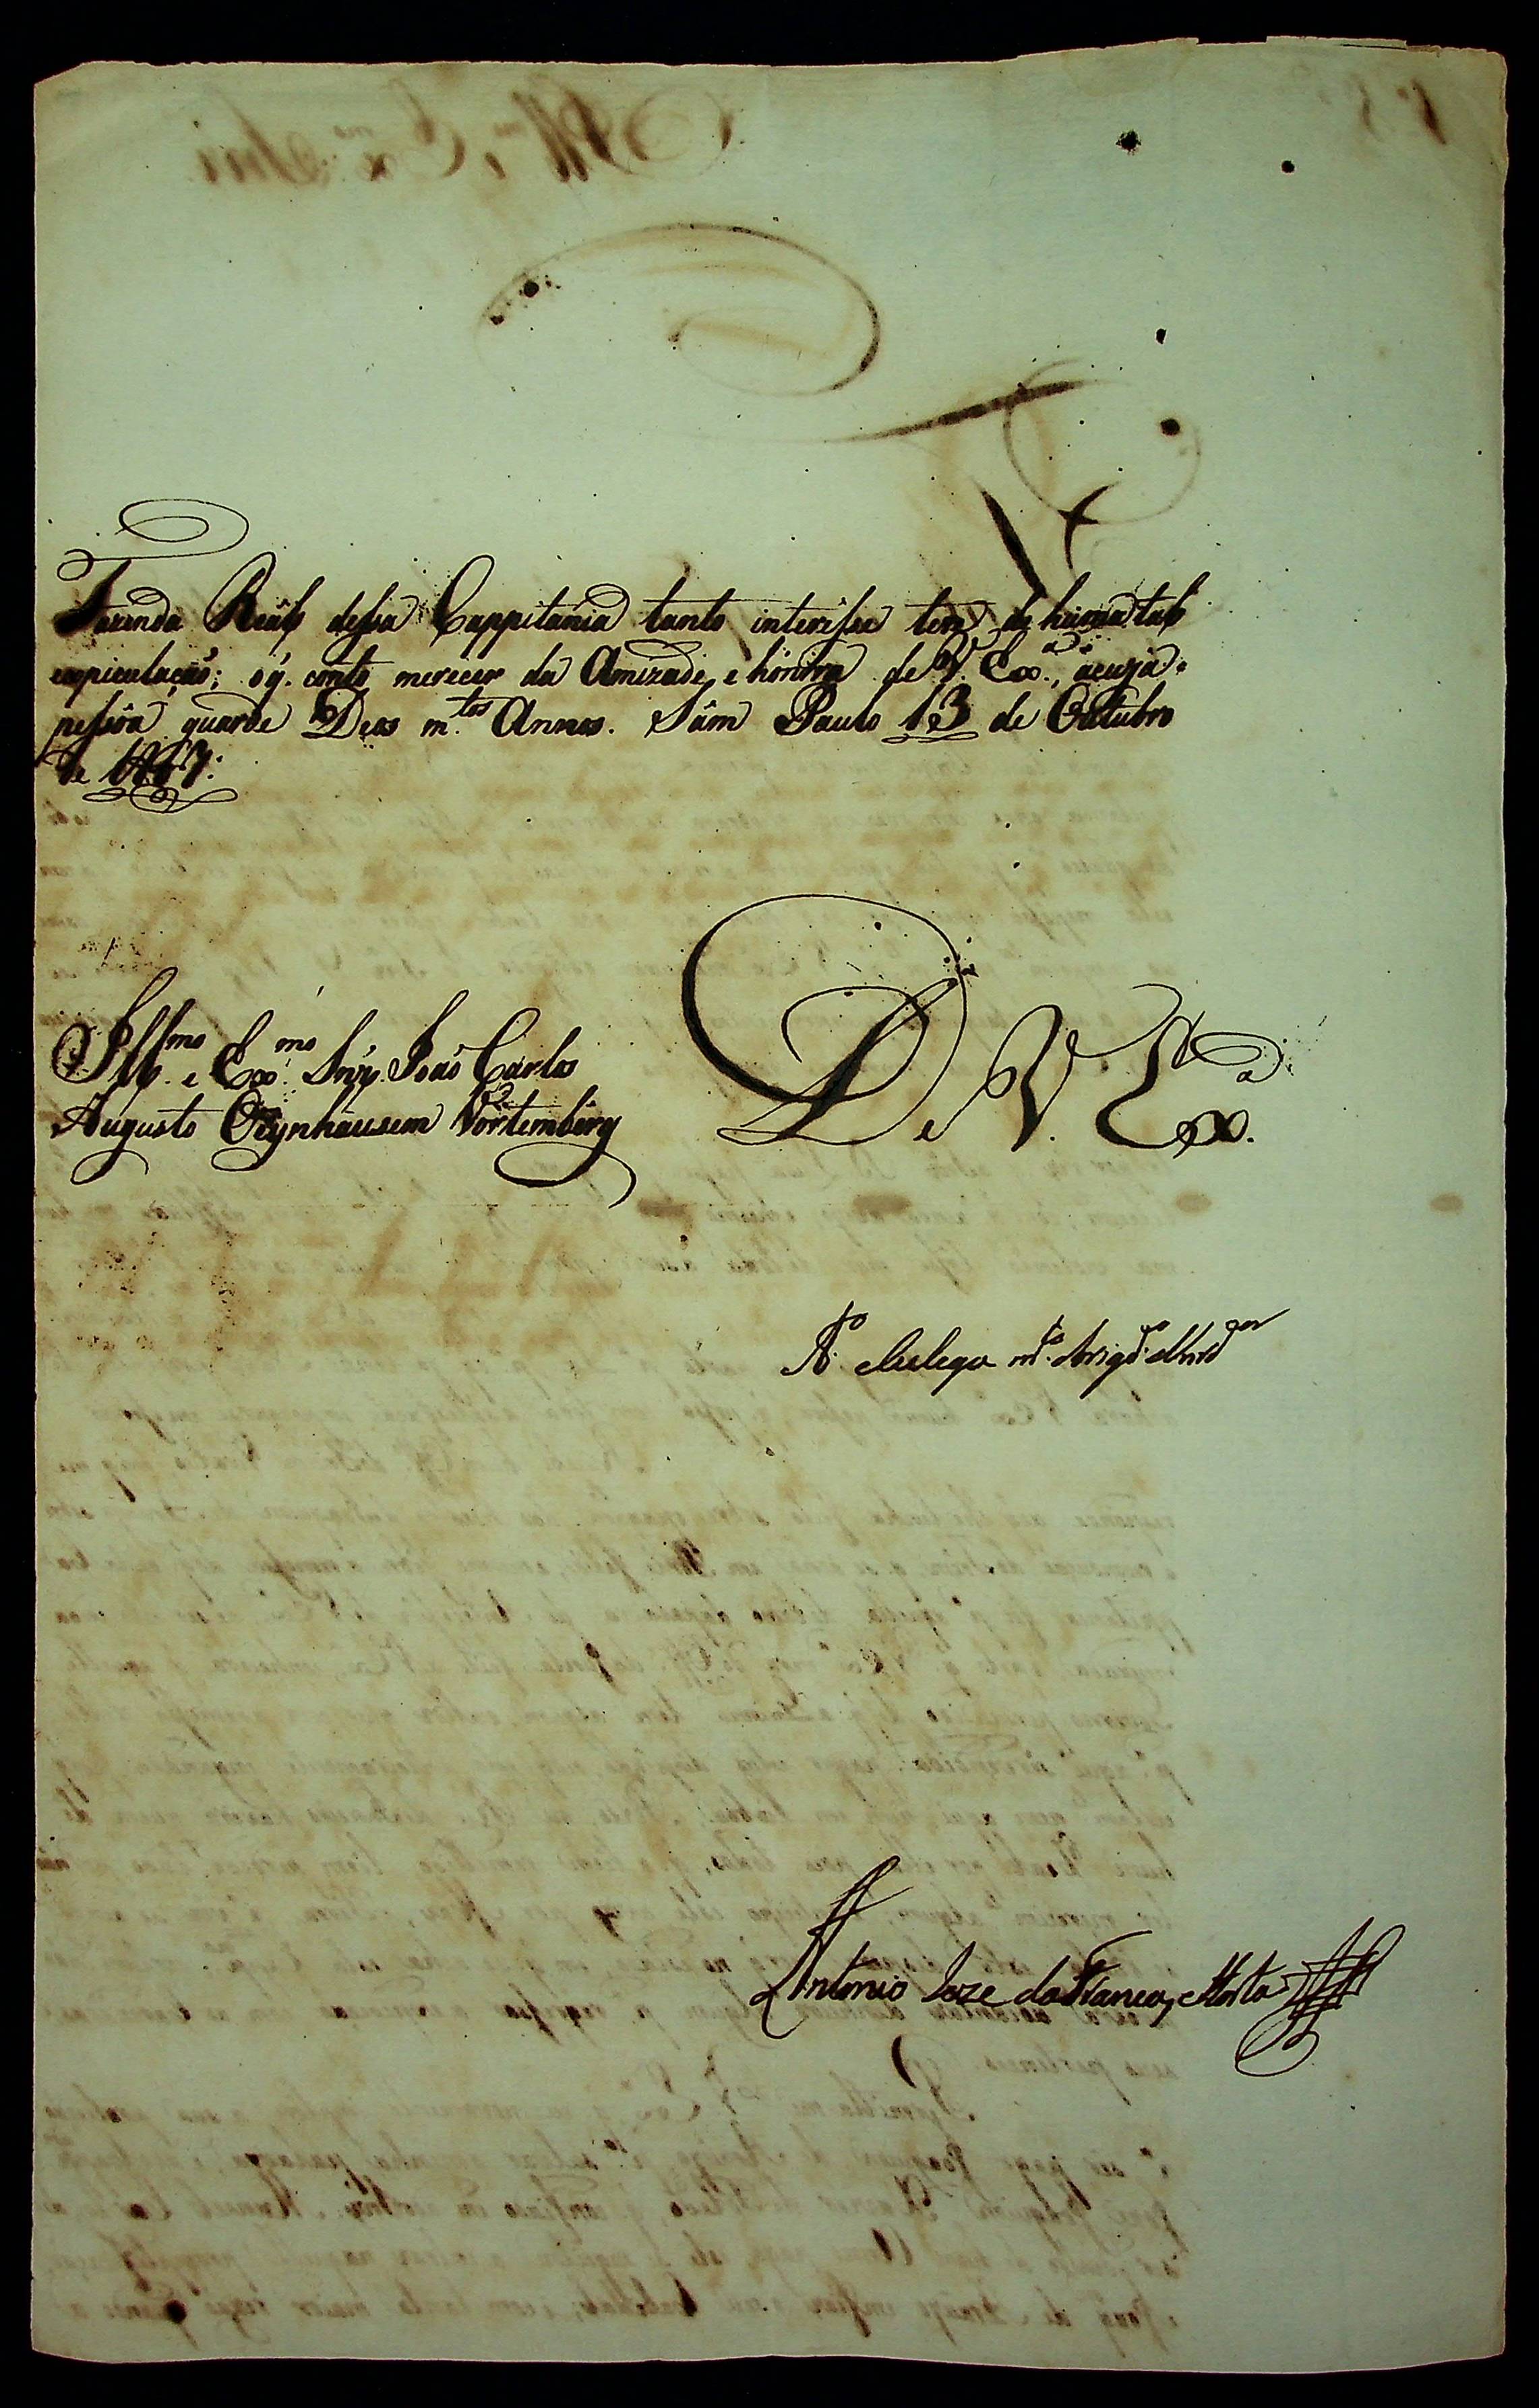 Fazenda Reál dessa Cappitania tanto interêsse tem de huma tal
expiculaçaõ; o q. conto merecer da Amizade, e honrra de V. Exª., acuja
pessôa guarde Deos m.tos Annos. Sâm Paulo 13 de Outubro
de 1817.
Ill.mo e Ex.mo Snr. Joaõ Carlos
Augusto Oeynhausem Vortemberg
De V. Exª.
Colega m.to
Antonio Joze da Franca, e Horta